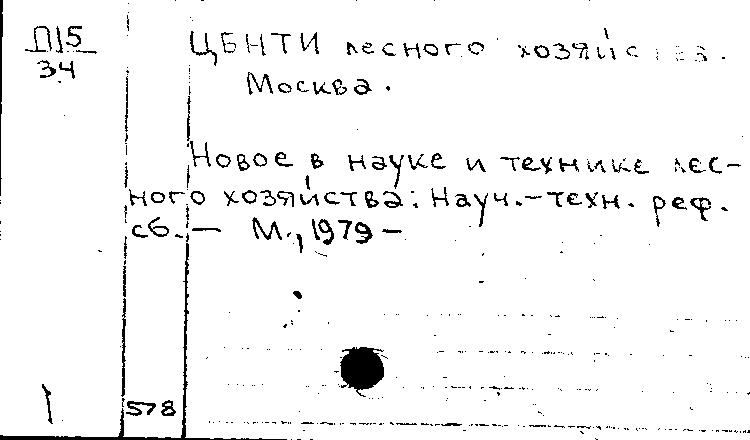 П15
34
ЦБНТИ лесного хозяйства.
Москва.
Новое в науке и технике лес-
ного хозяйства: Науч.-техн. реф.
сб. — М., 1979 —
578